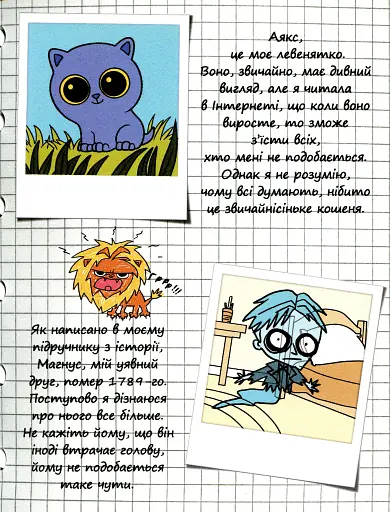 Аякс,
це моє левенятко.
Воно, звичайно, має дивний
вигляд, але я читала
в Інтернеті, що коли воно
виросте, то зможе
з'їсти всіх,
хто мені не подобається.
Однак я не розумію,
чому всі думають, нібито
це звичайнісіньке кошеня.
Як написано в моєму
підручнику з історії,
Магнус, мій уявний
друг, помер 1789-го.
Поступово я дізнаюся
про нього все більше.
Не кажіть йому, що він
іноді втрачає голову,
йому не подобається
таке чути.